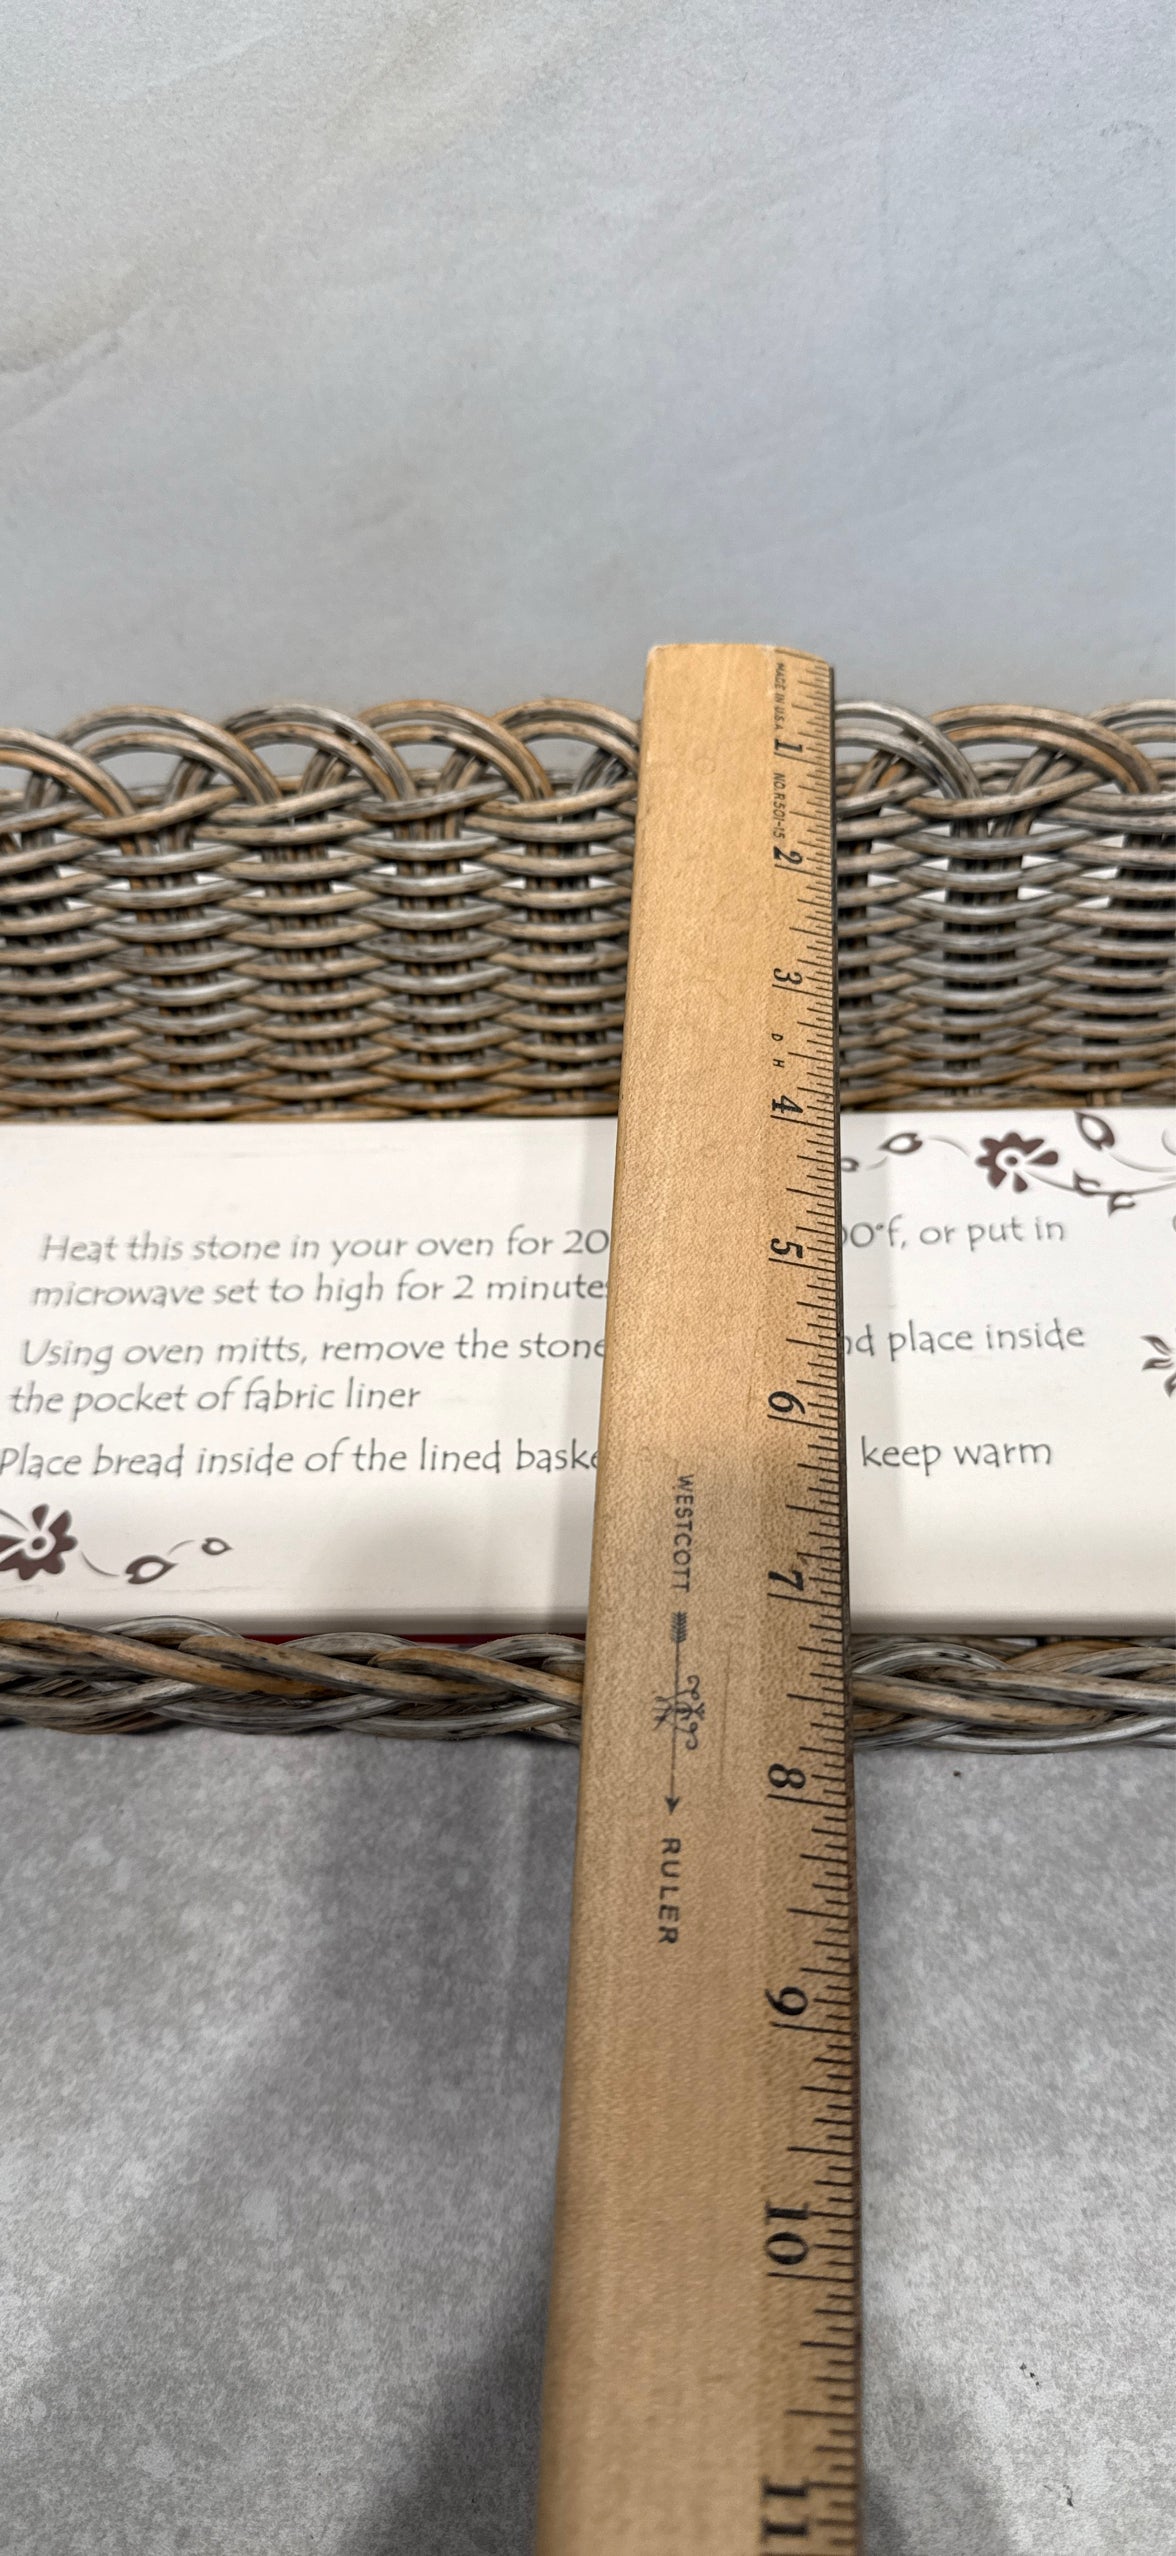 Heat this stone in your oven for 20 0°f, or put in
microwave set to high for 2 minutes
Using oven mitts, remove the stone nd place inside
the pocket of fabric liner
Place bread inside of the lined baske keep warm
MADE IN U.S.A.
NO.R501-15
D H
1
2
3
4
5
6
7
8
9
10
11
WESTCOTT
RULER